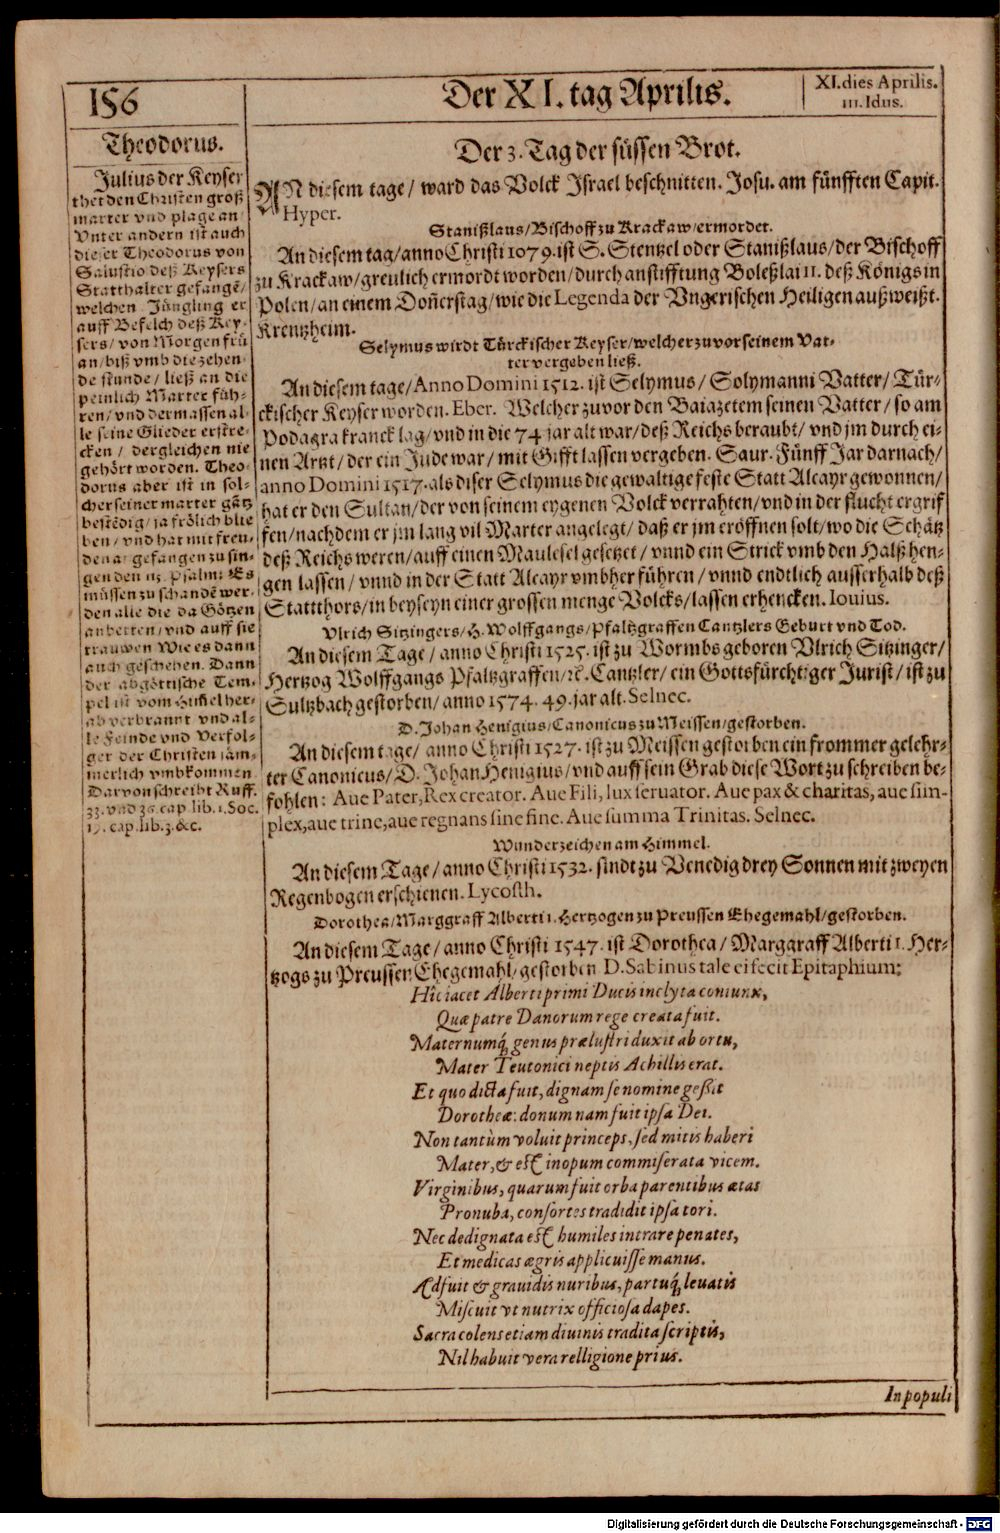 156
Der XI. tag Aprilis.
XI. dies Aprilis.
III. Idus.
Theodorus.
Julius der Keyser
thet den Christen groß
marter vnd plage an
Vnter andern ist auch
dieser Theodorus von
Salustio deß Keysers
Statthalter gefangē/
welchen Jüngling er
auff Befelch deß Key-
sers/ von Morgen frü
an/ biß vmb die zehen-
de stunde/ ließ an die
peinlich Marter füh-
ren/ vnd dermassen al-
le seine Glieder erstre-
cken/ dergleichen nie
gehört worden. Theo-
dorus aber ist in sol-
cher seiner marter gātz
bestēdig/ ja frölich blie
ben/ vnd hat mit freu-
den gefangen zu sin-
gen den Psalm: Es
müssen zu schandē wer-
den alle die da Götzen
anbetten/ vnd auff sie
trauwen Wie es dann
auch geschehen. Dann
der abgöttische Tem-
pel ist vom Him̃el her-
ab verbrannt vnd al-
le Feinde vnd Verfol-
ger der Christen jäm-
merlich vmbkommen
Darvon schreibt Ruff.
33. vnd 36. cap. lib. 1. Soc.
cap. lib. 3. &c.
Der 3. Tag der süssen Brot.
AN diesem tage/ ward das Volck Israel beschnitten. Josu. am fünfften Capit.
Hyper.
Stanißlaus/ Bischoff zu Krackaw/ ermordet.
An diesem tag/ anno Christi 1079. ist S. Stentzel oder Stanißlaus/ der Bischoff
zu Krackaw/ greulich ermordt worden/ durch anstifftung Boleßlai II. deß Königs in
Polen/ an einem Don̄erstag/ wie die Legenda der Vngerischen Heiligen außweißt.
Kreutzheim.
Selymus wirdt Türckischer Keyser/ welcher zuvor seinem Vat-
ter vergeben ließ.
An diesem tage/ Anno Domini 1512. ist Selymus/ Solymanni Vatter/ Tür-
ckischer Keyser worden. Eber. Welcher zuvor den Baiazetem seinen Vatter/ so am
Podagra kranck lag/ vnd in die 74 jar alt war/ deß Reichs beraubt/ vnd jm durch ei-
nen Artzt/ der ein Jude war/ mit Gifft lassen vergeben. Saur. Fünff Jar darnach/
anno Domini 1517. als diser Selymus die gewaltige feste Statt Alcayr gewonnen/
hat er den Sultan/ der von seinem eygenen Volck verrahten/ vnd in der flucht ergrif
fen/ nachdem er jm lang vil Marter angelegt/ daß er jm eröffnen solt/ wo die Schätz
deß Reichs weren/ auff einen Maulesel gesetzet/ vnnd ein Strick vmb den Halß hen-
gen lassen/ vnnd in der Statt Alcayr vmbher führen/ vnnd endtlich ausserhalb deß
Stattthors/ in beyseyn einer grossen menge Volcks/ lassen erhencken. Iouius.
Vlrich Sitzingers/ H. Wolffgangs/ Pfaltzgraffen Cantzlers Geburt vnd Tod.
An diesem Tage/ anno Christi 1525. ist zu Wormbs geboren Vlrich Sitzinger/
Hertzog Wolffgangs Pfaltzgraffen/ ꝛc. Cantzler/ ein Gottsfürchtiger Jurist/ ist zu
Sultzbach gestorben/ anno 1574. 49. jar alt. Selnec.
D. Johan Henigius/ Canonicus zu Meissen/ gestorben.
An diesem tage/ anno Christi 1527. ist zu Meissen gestorben ein frommer gelehr-
ter Canonicus/ D. Johan Henigius/ vnd auff sein Grab diese Wort zu schreiben be-
fohlen: Aue Pater, Rex creator. Aue Fili, lux seruator. Aue pax & charitas, aue sim-
plex, aue trine, aue regnans sine fine. Aue summa Trinitas. Selnec.
Wunderzeichen am Himmel.
An diesem Tage/ anno Christi 1532. sindt zu Venedig drey Sonnen mit zweyen
Regenbogen erschienen. Lycosth.
Dorothea/ Marggraff Alberti I. Hertzogen zu Preussen Ehegemahl/ gestorben.
An diesem Tage/ anno Christi 1547. ist Dorothea/ Marggraff Alberti I. Her-
tzogs zu Preussen Ehegemahl/ gestorben D. Sabinus tale ei fecit Epitaphium:
Hîc iacet Alberti primi Ducis inclyta coniunx,
Quæ patre Danorum rege creata fuit.
Maternumq́; genus prælustri duxit ab ortu,
Mater Teutonici neptis Achillis erat.
Et quo dicta fuit, dignam se nomine geßit
Dorotheæ: donum nam fuit ipsa Dei.
Non tantùm voluit princeps, sed mitis haberi
Mater, & est inopum commiserata vicem.
Virginibus, quarum fuit orba parentibus ætas
Pronuba, consortes tradidit ipsa tori.
Nec dedignata est humiles intrare penates,
Et medicas ægris applicuisse manus.
Adfuit & grauidis nuribus, partuq́; leuatis
Miscuit vt nutrix officiosa dapes.
Sacra colens etiam diuinis tradita scriptis,
Nil habuit vera relligione prius.
In populi
Digitalisierung gefördert durch die Deutsche Forschungsgemeinschaft - DFG